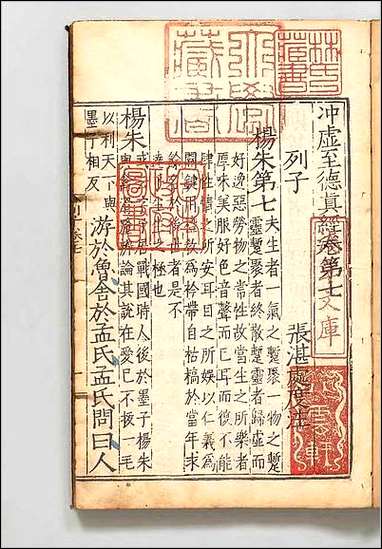 冲虛至德真經卷第七
列子 張湛處度注
楊朱第七 夫生者一氣之蹔聚一物之蹔
靈蹔聚者終散蹔靈者歸虛而
好逸惡勞物之常性故當生之所樂者
厚味美服好色音聲而已耳而復不能
肆性情之所安耳目之所娛以仁義爲
關鍵用禮教爲衿帶自枯槁於當年求
餘名於後世者是不
達乎生生之極也
楊朱 或云字子居戰國時人後於墨子楊朱
與禽滑釐辯論其說在愛己不拔一毛
以利天下與
墨子相反 游於魯舍於孟氏孟氏問曰人
林氏藏書
文庫